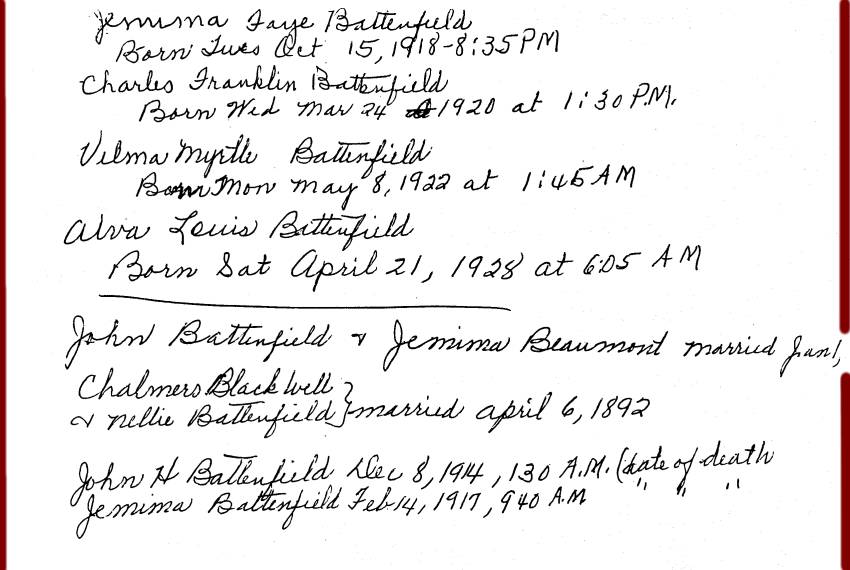 Jemima Faye Battenfield
Born Tues Oct 15, 1918-8:35 PM
Charles Franklin Battenfield
Born Wed Mar 24 1920 at 1:30 P.M.
Vilma Myrtle Battenfield
Born Mon May 8, 1922 at 1:45 AM
Alva Louis Battenfield
Born Sat April 21, 1928 at 6:05 AM
John Battenfield & Jemima Beaumont married Jan 1,
Chalmers Blackwell
& Nellie Battenfield } married April 6, 1892
John H Battenfield Dec 8, 1914, 130 A.M. (date of death
Jemima Battenfield Feb 14, 1917, 940 A.M. " " "